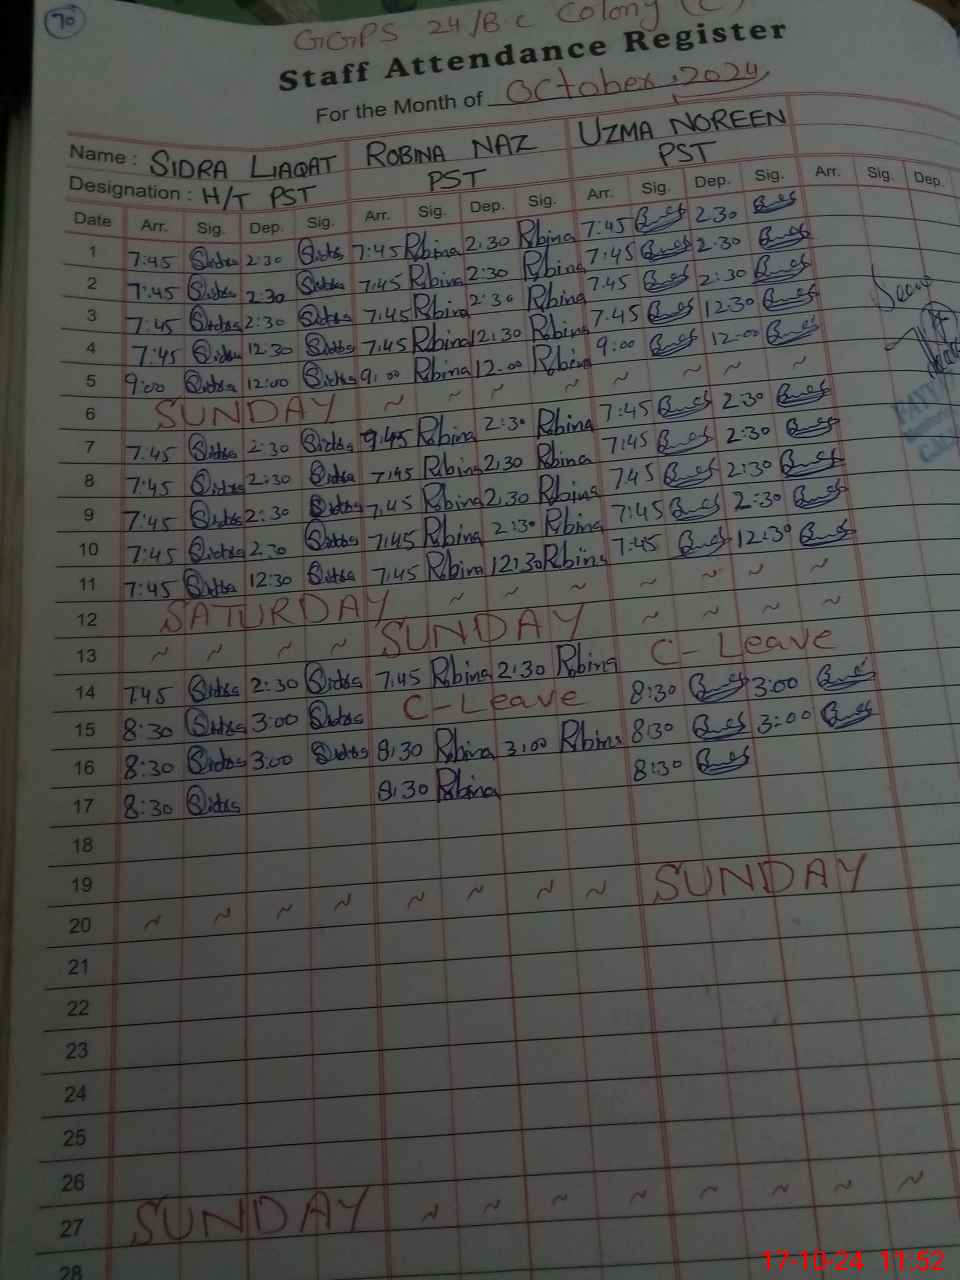 70
GGPS 24/B.C Colony (C)
Staff Attendance Register
For the Month of October, 2024
Name : SIDRA LIAQAT ROBINA NAZ UZMA NOREEN
Designation : H/T PST PST PST
Date Arr. Sig. Dep. Sig. Arr. Sig. Dep. Sig. Arr. Sig. Dep. Sig. Arr. Sig. Dep.
1 7:45 Sidra 2:30 Sidra 7:45 Robina 2:30 Robina 7:45 2:30
2 7:45 Sidra 2:30 Sidra 7:45 Robina 2:30 Robina 7:45 2:30
3 7:45 Sidra 2:30 Sidra 7:45 Robina 2:30 Robina 7:45 2:30
4 7:45 Sidra 12:30 Sidra 7:45 Robina 12:30 Robina 7:45 12:30
5 9:00 Sidra 12:00 Sidra 9:00 Robina 12:00 Robina 9:00 12:00
6 SUNDAY ~ ~ ~ ~ ~ ~ ~
7 7:45 Sidra 2:30 Sidra 9:45 Robina 2:30 Robina 7:45 2:30
8 7:45 Sidra 2:30 Sidra 7:45 Robina 2:30 Robina 7:45 2:30
9 7:45 Sidra 2:30 Sidra 7:45 Robina 2:30 Robina 745 2:30
10 7:45 Sidra 2:30 Sidra 7:45 Robina 2:30 Robina 7:45 2:30
11 7:45 Sidra 12:30 Sidra 7:45 Robina 12:30 Robina 7:45 12:30
12 SATURDAY ~ ~ ~ ~ ~ ~ ~
13 ~ ~ ~ ~ SUNDAY ~ ~ ~ ~
14 7:45 Sidra 2:30 Sidra 7:45 Robina 2:30 Robina C- Leave
15 8:30 Sidra 3:00 Sidra C-Leave 8:30 3:00
16 8:30 Sidra 3:00 Sidra 8:30 Robina 3:00 Robina 8:30 3:00
17 8:30 Sidra 8:30 Robina 8:30
18
19
20 ~ ~ ~ ~ ~ ~ ~ ~ SUNDAY
21
22
23
24
25
26
27 SUNDAY ~ ~ ~ ~ ~ ~ ~ ~
28
17-10-24 11:52